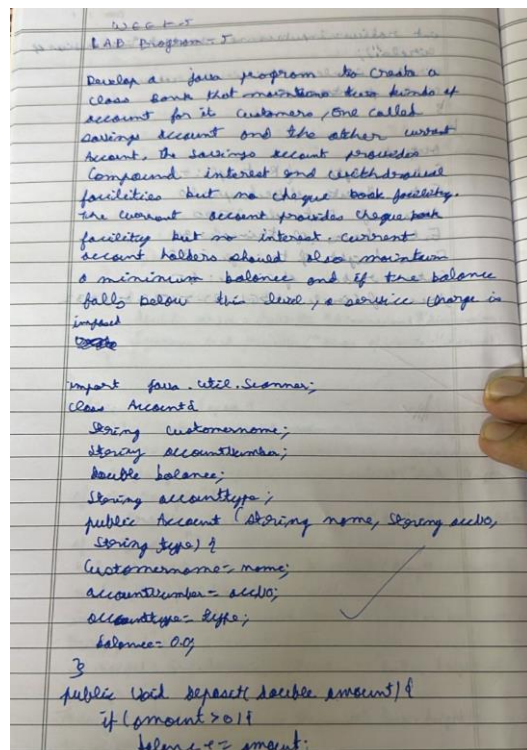 WEEK-5
LAB Program-5
Develop a java program to create a
class Bank that maintains two kinds of
account for it customers, one called
savings account and the other current
Account. The savings account provides
Compound interest and withdrawal
facilities but no cheque book facility.
The current account provides cheque book
facility but no interest. current
account holders should also maintain
a minimum balance and if the balance
falls below this level, a service charge is
imposed
import java.util.Scanner;
class Account{
String customername;
String accountNumber;
double balance;
String accounttype;
public Account (String name, String accNo,
String type) {
Customername= name;
accountNumber= accNo;
accounttype= type;
balance= 0.0;
}
public void deposit( double amount) {
if (amount >0) {
balance += amount;